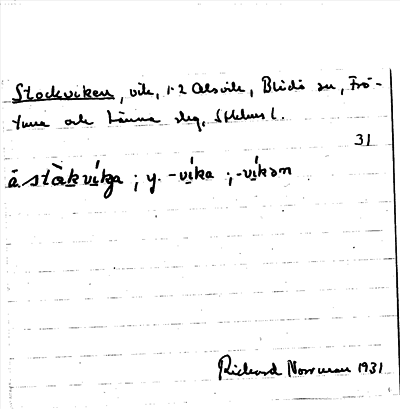 Stockviken, vik, 1:2 Alsvik, Blidö sn, Frö-
tuna och Länna slg, Sthlms l.
31
å stàkvíka; y. -víka; -víkən
Richard Norrman 1931